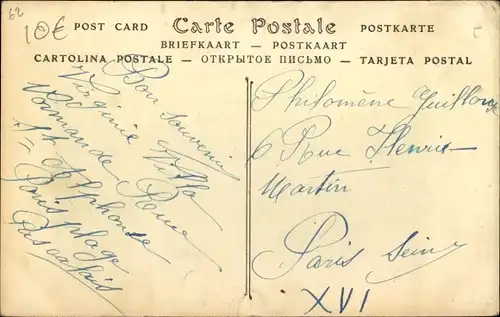 62
10€
POST CARD Carte Postale POSTKARTE
BRIEFKAART — POSTKAART
CARTOLINA POSTALE — ОТКРЫТОЕ ПИСЬМО — TARJETA POSTAL
Bon souvenir
Virginie Villa
Normande Rue
St Alphonse
Paris plage
Pas de Calais
Philomène Guillou
6 Rue Henri
Martin
Paris Seine
XVI